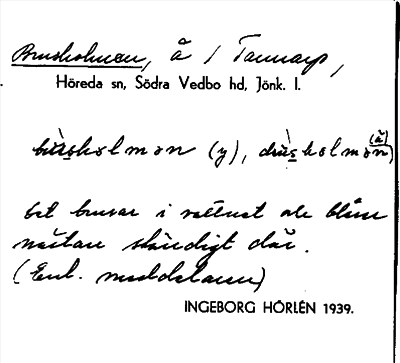 Brusholmen, å i Tannarp,
Höreda sn, Södra Vedbo hd, Jönk. l.
brùsholmən (y), brùsholmən (ä)
det brusar i vattnet
nästan ständigt där.
(Enl. meddelaren)
INGEBORG HÖRLÉN 1939.